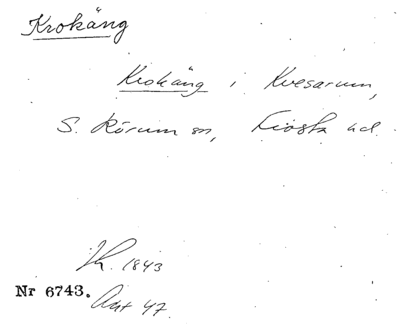 Krokäng
Krokäng i Kvesarum,
S. Rörum sn, Frosta hd.
Lk. 1843
Nr 6743.
Akt 47.